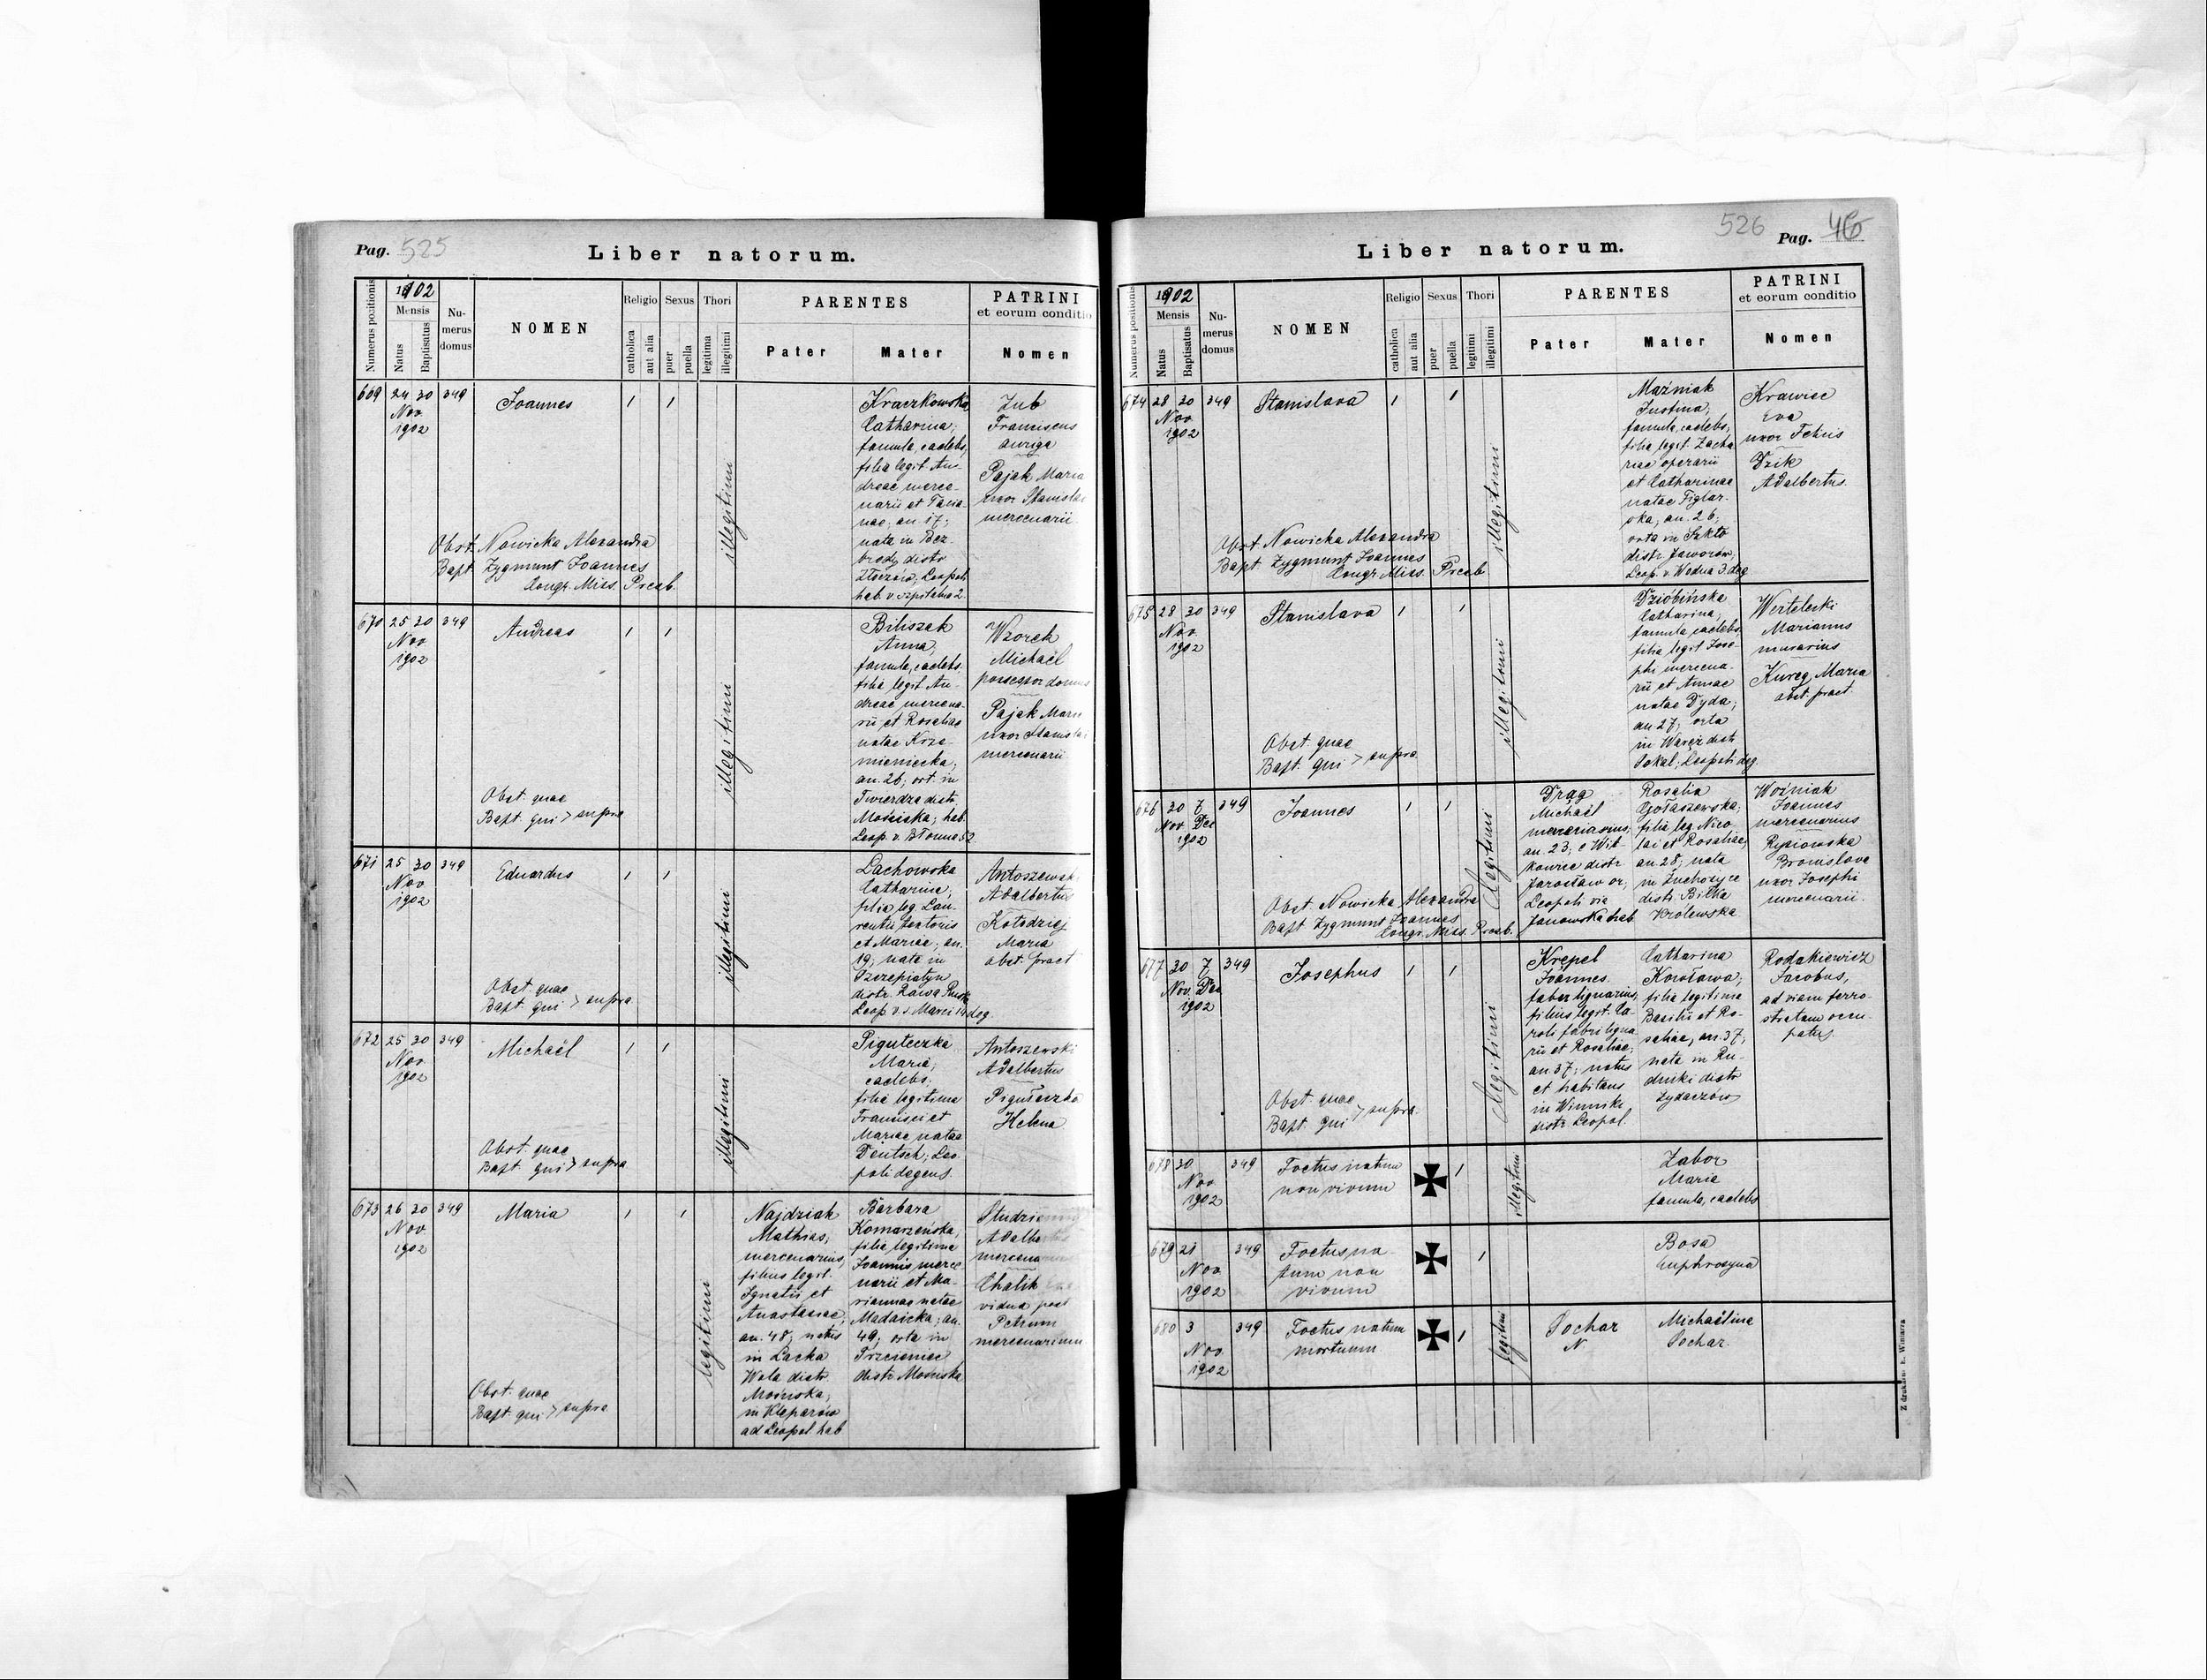 Pag. 525
Liber natorum.
Numerus pozitionis
1902
Mensis
Natus
Baptisatus
Nu-
merus
domus
NOMEN
Religio
catholica
aut alia
Sexus
puer
puella
Thori
legitima
illegitimi
PARENTES
Pater
Mater
PATRINI
et eorum conditio
Nomen
669
24 30
Nov
1902
349
Joannes
1
1
illegitimi
Kraczkowska
Catharina;
famula, caelebs,
filia legit. An-
dreae merce-
narii et Tacia-
nae; an. 17;
nata in Bez-
brody distr.
Złoczów; Leopoli
hab. v. szpitalna 2.
Zub
Franciscus
auriga
Pająk Maria
uxor Stanislai
mercenarii.
Obst. Nowicka Alexandra
Bapt. Zygmunt Joannes
Congr. Miss. Presb.
670
25 30
Nov
1902
349
Andreas
1
1
illegitimi
Biliszak
Anna,
famula, caelebs.
filia legit. An-
dreae mercena-
rii et Rosalias
natae Krze-
mieniecka;
an. 26; ort. in
Twierdza distr.
Mościska; hab.
Leop. v. Błonna 52
Wzorek
Michaël
possessor domus
Pająk Maria
uxor Stanislai
mercenarii
Obst. quae
Bapt. qui > supra
671
25 30
Nov
1902
349
Eduardus
1
1
illegitimi
Lachowska
Catharina;
filia leg. Lau-
rentii textoris
et Mariae; an.
19; nata in
Szczepiatyn
distr. Rawa Ruska
Leop. v. s. Marci 14 deg.
Antoszewski
Adalbertus
Kołodziej
Maria
obst. pract
Obst. quae
Bapt. qui > supra
672
25 30
Nov
1902
349
Michaël
1
1
illegitimi
Piguteczka
Maria,
caelebs;
filia legitima
Francisci et
Mariae natae
Deutsch; Leo-
poli degens.
Antoszewski
Adalbertus
Piguteczka
Helena
Obst. quae
Bapt. qui > supra
673
26 30
Nov
1902
349
Maria
1
1
legitimi
Najdziak
Mathias,
mercenarius,
filius legit.
Ignatii et
Anastasiae;
an. 48; natus
in Lacka
Wola distr.
Mościska;
in Kleparów
ad Leopol. hab
Barbara
Komarzeńska,
filia legitima
Joannis merce
narii et Ma-
riannae natae
Madaicka; an.
49; orta in
Trzcieniec
distr. Mościska
Adalbertus
Chalik
vidua post
Petrum
mercenarium
Obst. quae
Bapt. qui > supra
526
Pag. 46
Liber natorum.
Numerus positionis
1902
Mensis
Natus
Baptisatus
Nu-
merus
domus
NOMEN
Religio
catholica
aut alia
Sexus
puer
puella
Thori
legitimi
illegitimi
PARENTES
Pater
Mater
PATRINI
et eorum conditio
Nomen
674
28 30
Nov
1902
349
Stanislava
1
1
illegitimi
Maźniak
Justina;
famula, caelebs;
filia legit. Zacha
riae operarii
et Catharinae
natae Figlar-
ska; an. 26;
orta in Szkło
distr. Jaworów;
Leop. v. Wodna 3. deg
Krawiec
Eva
uxor Petris
Dzik
Adalbertus.
Obst. Nowicka Alexandra
Bapt. Zygmunt Joannes
Congr. Miss. Presb.
675
28 30
Nov
1902
349
Stanislava
1
1
illegitimi
Dzióbińska
Catharina;
famula, caelebs,
filia legit. Jose-
phi mercena-
rii et Annae
natae Dyda;
an. 27; orta
in Waręż distr.
Sokal; Leopoli deg.
Wertelecki
Marianus
murarius
Kureg Maria
obst. pract.
Obst. quae
Bapt. qui > supra
676
30 7
Nov. Dec
1902
349
Joannes
1
1
legitimi
Drąg
Michaël
mercenarius;
an. 23; e Wit-
kowice distr.
Jarosław or;
Leopoli via
Janowska hab.
Rosalia
Gołaszewska;
filia leg. Nico-
lai et Rosaliae;
an. 28; nata
in Zuchorzyce
distr. Biłka
Królewska
Woźniak
Joannes
mercenarius
Rysiowska
Bronislava
uxor Josephi
mercenarii.
Obst. Nowicka Alexandra
Bapt. Zygmunt Joannes
Congr. Miss. Presb.
677
30 7
Nov. Dec
1902
349
Josephus
1
1
legitimi
Krepel
Joannes.
faber lignarius;
filius legit. Ca-
roli fabri ligna
rii et Rosaliae;
an. 37; natus
et habitans
in Winniki
distr. Leopol.
Catharina
Koroława;
filia legitima
Basilii et Ro-
saliae, an. 37,
nata in Ru-
dniki distr.
Żydaczów
Rodakiewicz
Jacobus,
ad viam ferro-
stratam occu-
patus.
Obst. quae
Bapt. qui > supra
678
30
Nov
1902
349
Foetus natum
non vivum
1
illegitimi
Zabor
Maria
famula, caelebs
679
21
Nov
1902
349
Foetus na-
tum non
vivum
1
Bosa
Euphrosyna
680
3
Nov
1902
349
Foetus natum
mortuum
1
legitimi
Sochar
N
Michaëlina
Sochar.
Z drukarni k. Winiarza